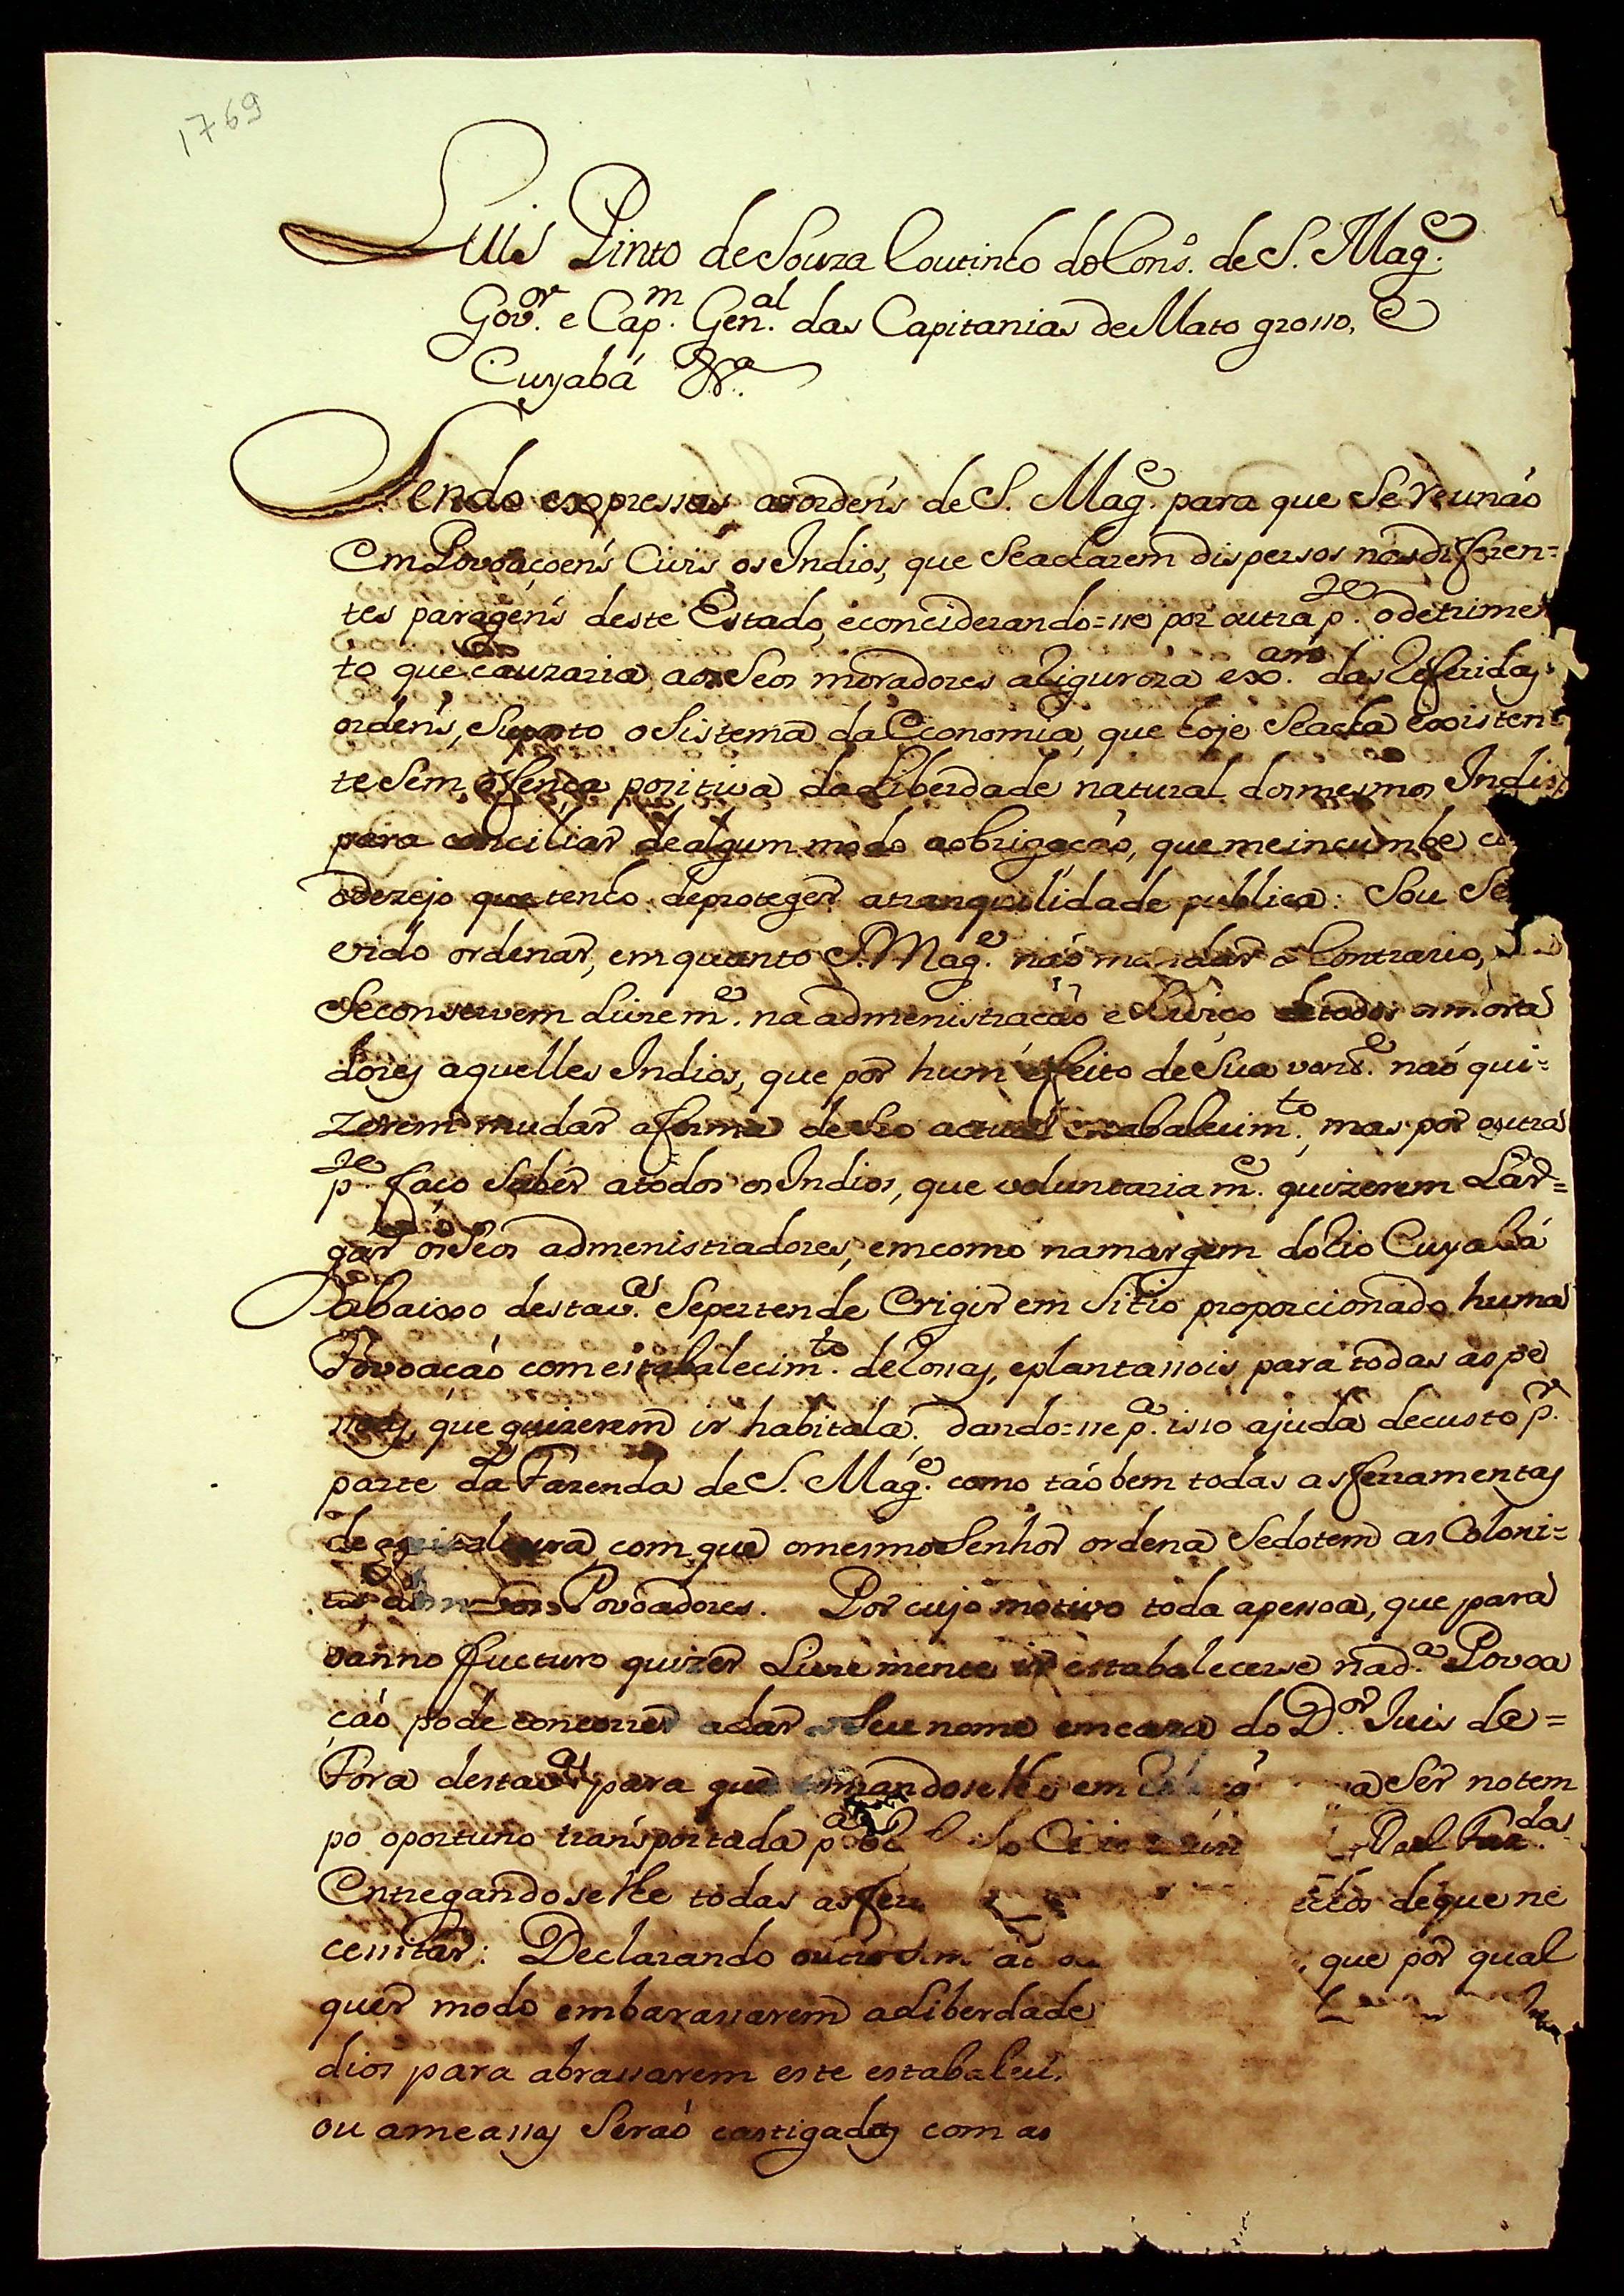 1769
Luis Pinto de Souza Coutinho do Cons.º de S. Mag.e
Gov.or e Cap.m Gen.al das Capitanias de Mato grosso, e
Cuyabá &.a
Sendo expressas as ordens de S. Mag.e para que se reunão
em Povoaçoens Civis os Indios, que se acharem dispersos nas diferen=
tes paragens deste Estado, e conciderando=se por outra p.te o detrimen
to que cauzaria aos seos moradores a riguroza ex.am das referidas
ordens, suposto o sistema da Economia, que hoje se acha existen=
te sem ofença pozitiva da Liberdade natural dos mesmos Indios
para conciliar de algum modo a obrigação, que me incumbe
o dezejo que tenho de proteger a tranquilidade publica: Sou Se
rvido ordenar, em quanto S. Mag.e não mandar o contrario,
se conservem Livrem.e na admenistração e serviço de todos os mora
dores aquelles Indios, que por hum efeito de sua vont.e não qui=
zerem mudar a forma de seo actual estabalecim.to, mas por outra
p.te faço saber a todos os Indios, que voluntariam.e quizerem Lar=
gar os seos admenistradores, em como na margem do Rio Cuyabá
abaixo desta v.a se pertende erigir em sitio proporcionado huma
Povoação com estabalecim.to de rossas, e plantassois para todas as pe
ssoas, que quizerem ir habitala. dando=se p.a isso ajuda de custo p.r
parte da Fazenda de S. Mag.e como tão bem todas as ferramentas
de agricultura, com que o mesmo Senhor ordena se dotem as Coloni=
Povoadores. Por cujo motivo toda a pessoa, que para
o anno fucturo quizer Livremente ir estabalecerse na d.a Povoa
ção, pode concorrer a dar o seu nome em caza do D.or Juis de=
Fora desta v.a para que tomandoselhe em ser no tem
po oportuno transportada p.a
Entregandoselhe todas as de que ne
cessitar: Declarando outro sim que por qual
quer modo embarassarem a Liberdade
dios para abrassarem este
ou ameassas serão castigados com as